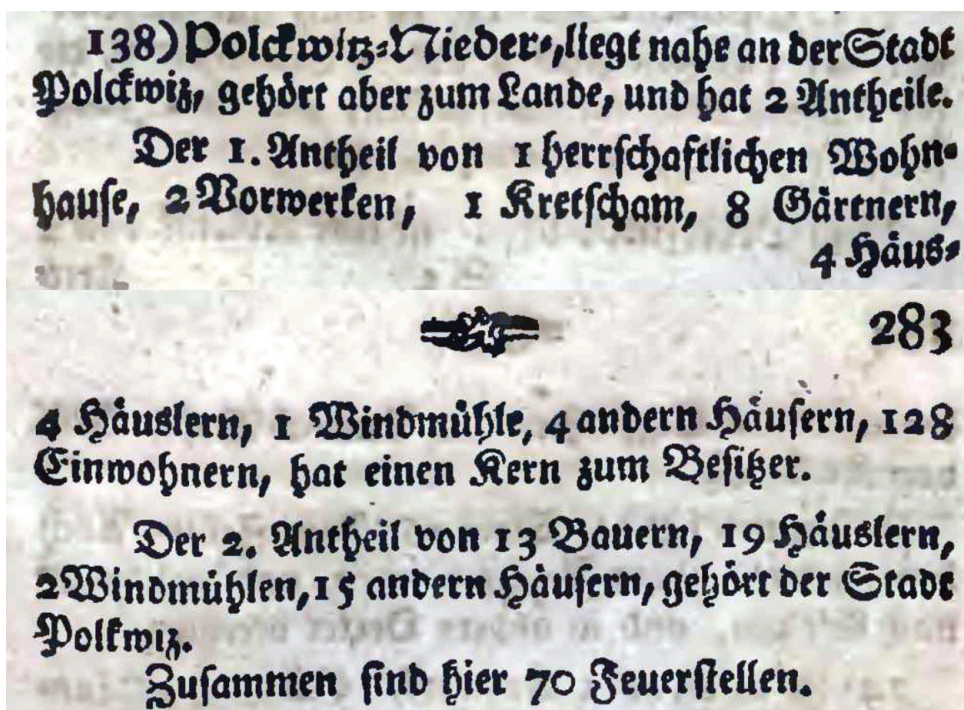 138) Polckwitz-Nieder-, liegt nahe an der Stadt
Polckwiz, gehört aber zum Lande, und hat 2 Antheile.
Der 1. Antheil von 1 herrschaftlichen Wohn-
hause, 2 Vorwerken, 1 Kretscham, 8 Gärtnern,
4 Häus-
283
4 Häuslern, 1 Windmühle, 4 andern Häusern, 128
Einwohnern, hat einen Kern zum Besitzer.
Der 2. Antheil von 13 Bauern, 19 Häuslern,
2 Windmühlen, 15 andern Häusern, gehört der Stadt
Polkwiz.
Zusammen sind hier 70 Feuerstellen.